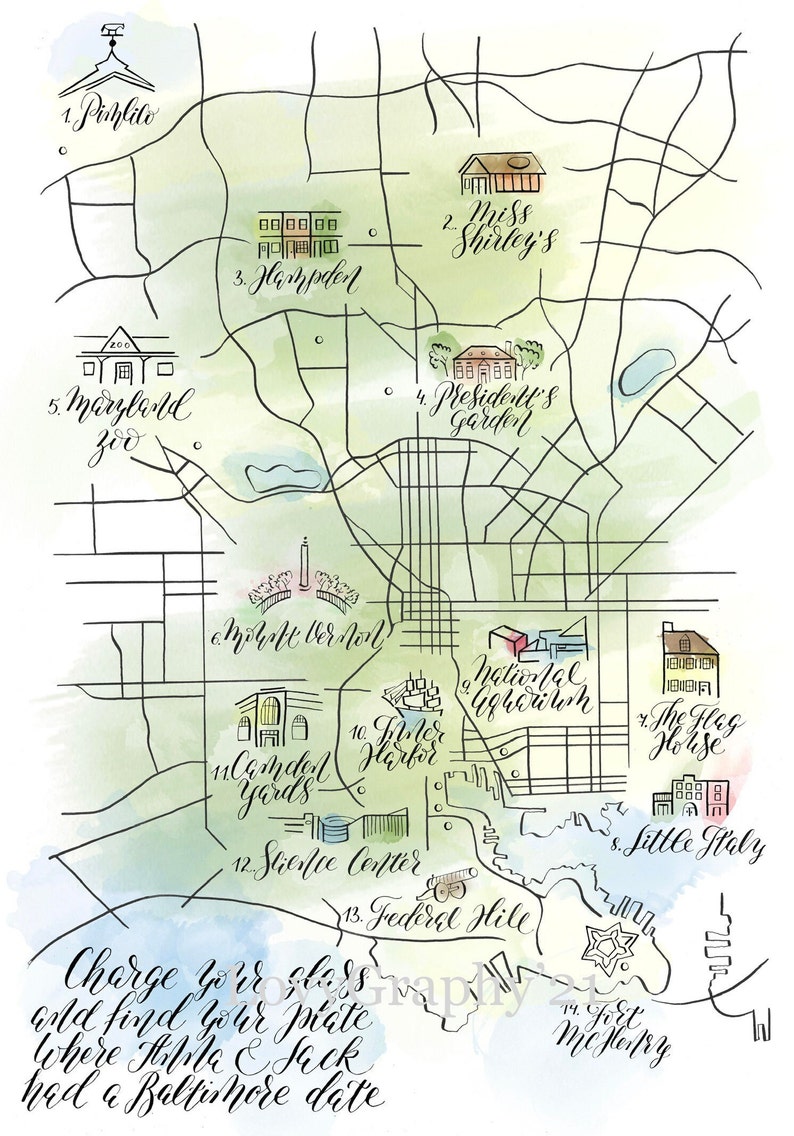 1. Pimlico
2. Miss
Shirley's
3. Hampden
ZOO
5. Maryland
zoo
4. President's
Garden
6. Mount Vernon
9. National
Aquarium
7. The Flag
House
10. Inner
Harbor
11. Camden
Yards
8. Little Italy
12. Science Center
13. Federal Hill
14. Fort
McHenry
Charge your glass
and find your plate
where Anna & Jack
had a Baltimore date
LovyGraphy'21